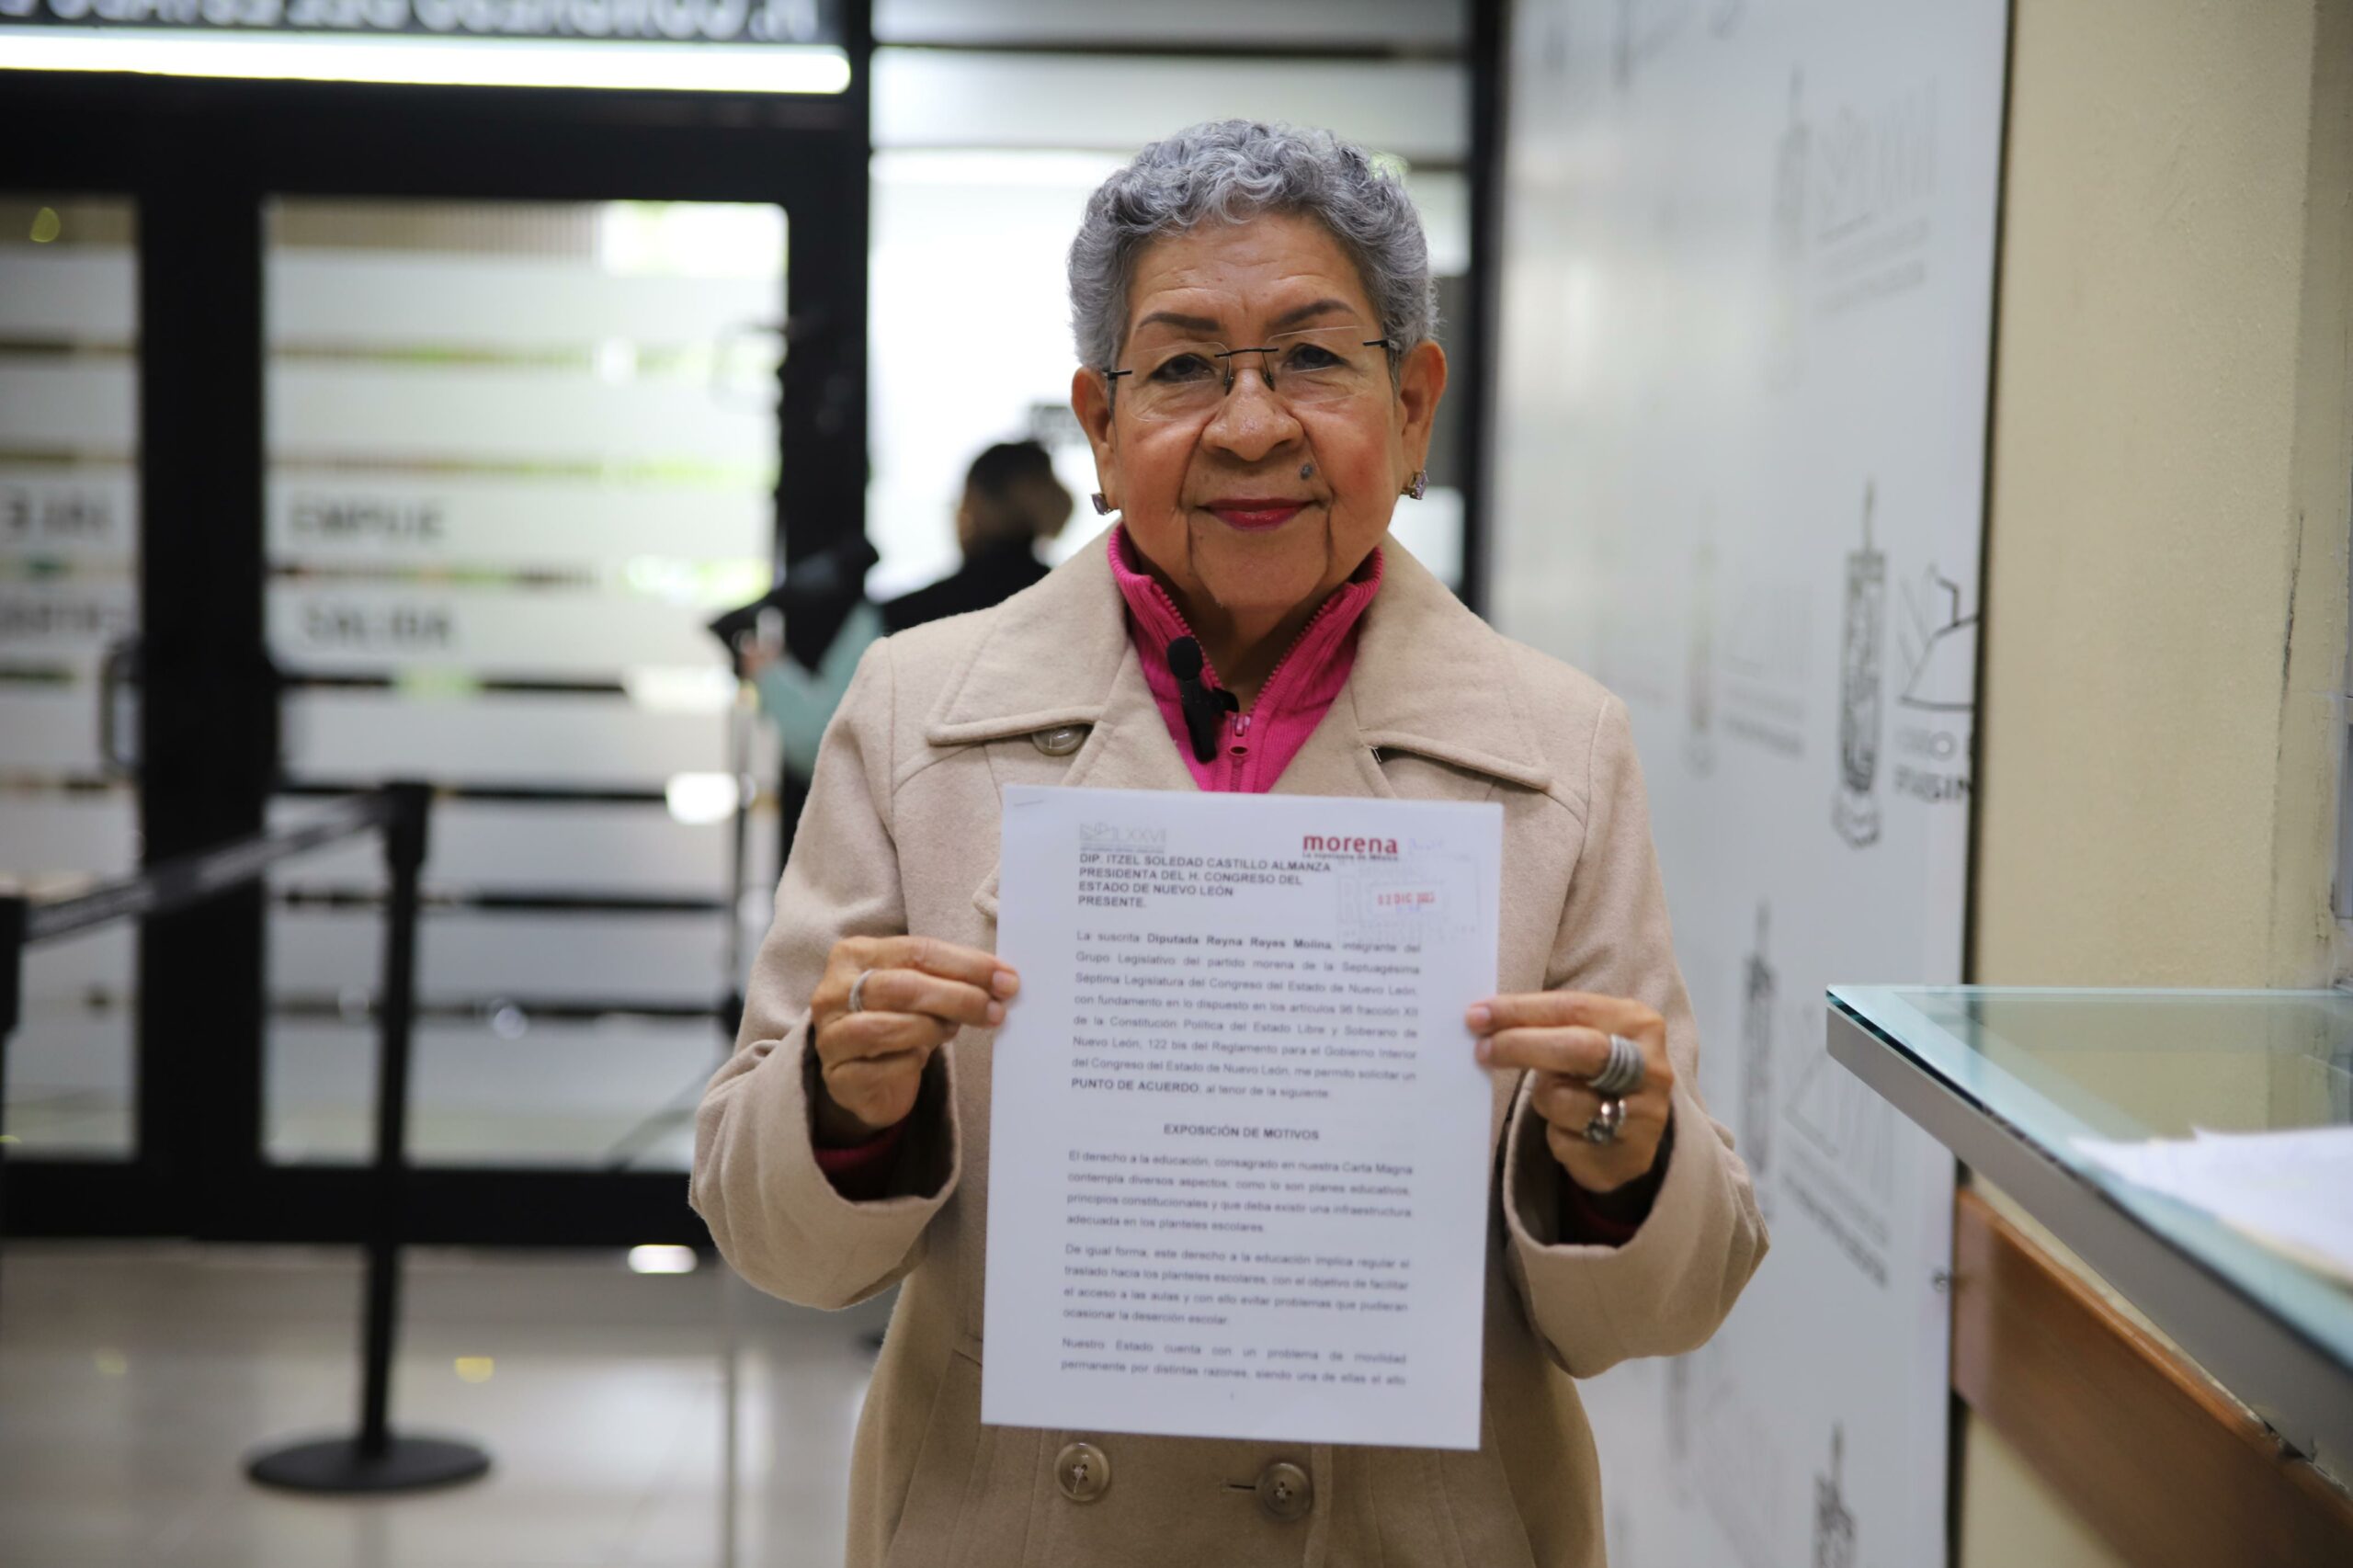 EMPUJE
SALIDA
LXXVII
morena
La esperanza de México
DIP. ITZEL SOLEDAD CASTILLO ALMANZA
PRESIDENTA DEL H. CONGRESO DEL
ESTADO DE NUEVO LEÓN
PRESENTE.
La suscrita Diputada Reyna Reyes Molina, integrante del
Grupo Legislativo del partido morena de la Septuagésima
Séptima Legislatura del Congreso del Estado de Nuevo León,
con fundamento en lo dispuesto en los artículos 96 fracción XII
de la Constitución Política del Estado Libre y Soberano de
Nuevo León, 122 bis del Reglamento para el Gobierno Interior
del Congreso del Estado de Nuevo León, me permito solicitar un
PUNTO DE ACUERDO, al tenor de la siguiente:
EXPOSICIÓN DE MOTIVOS
El derecho a la educación, consagrado en nuestra Carta Magna
contempla diversos aspectos, como lo son planes educativos,
principios constitucionales y que deba existir una infraestructura
adecuada en los planteles escolares.
De igual forma, este derecho a la educación implica regular el
traslado hacia los planteles escolares, con el objetivo de facilitar
el acceso a las aulas y con ello evitar problemas que pudieran
ocasionar la deserción escolar.
Nuestro Estado cuenta con un problema de movilidad
permanente por distintas razones, siendo una de ellas el alto
1